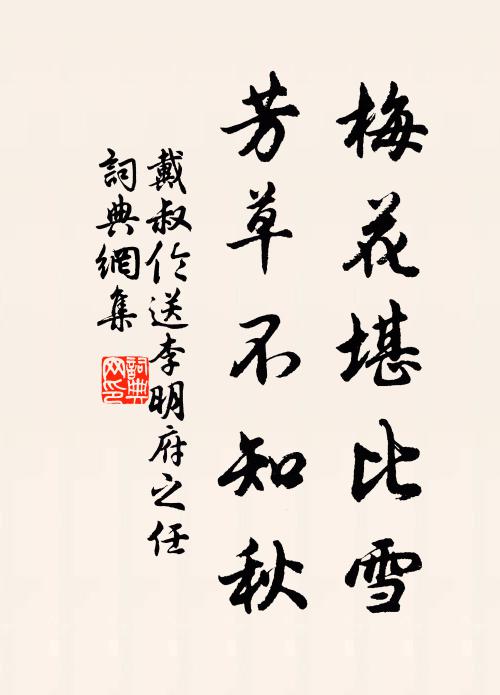 梅花堪比雪
芳草不知秋
戴叔伦送李明府之任
詞典網集
詞典
网印